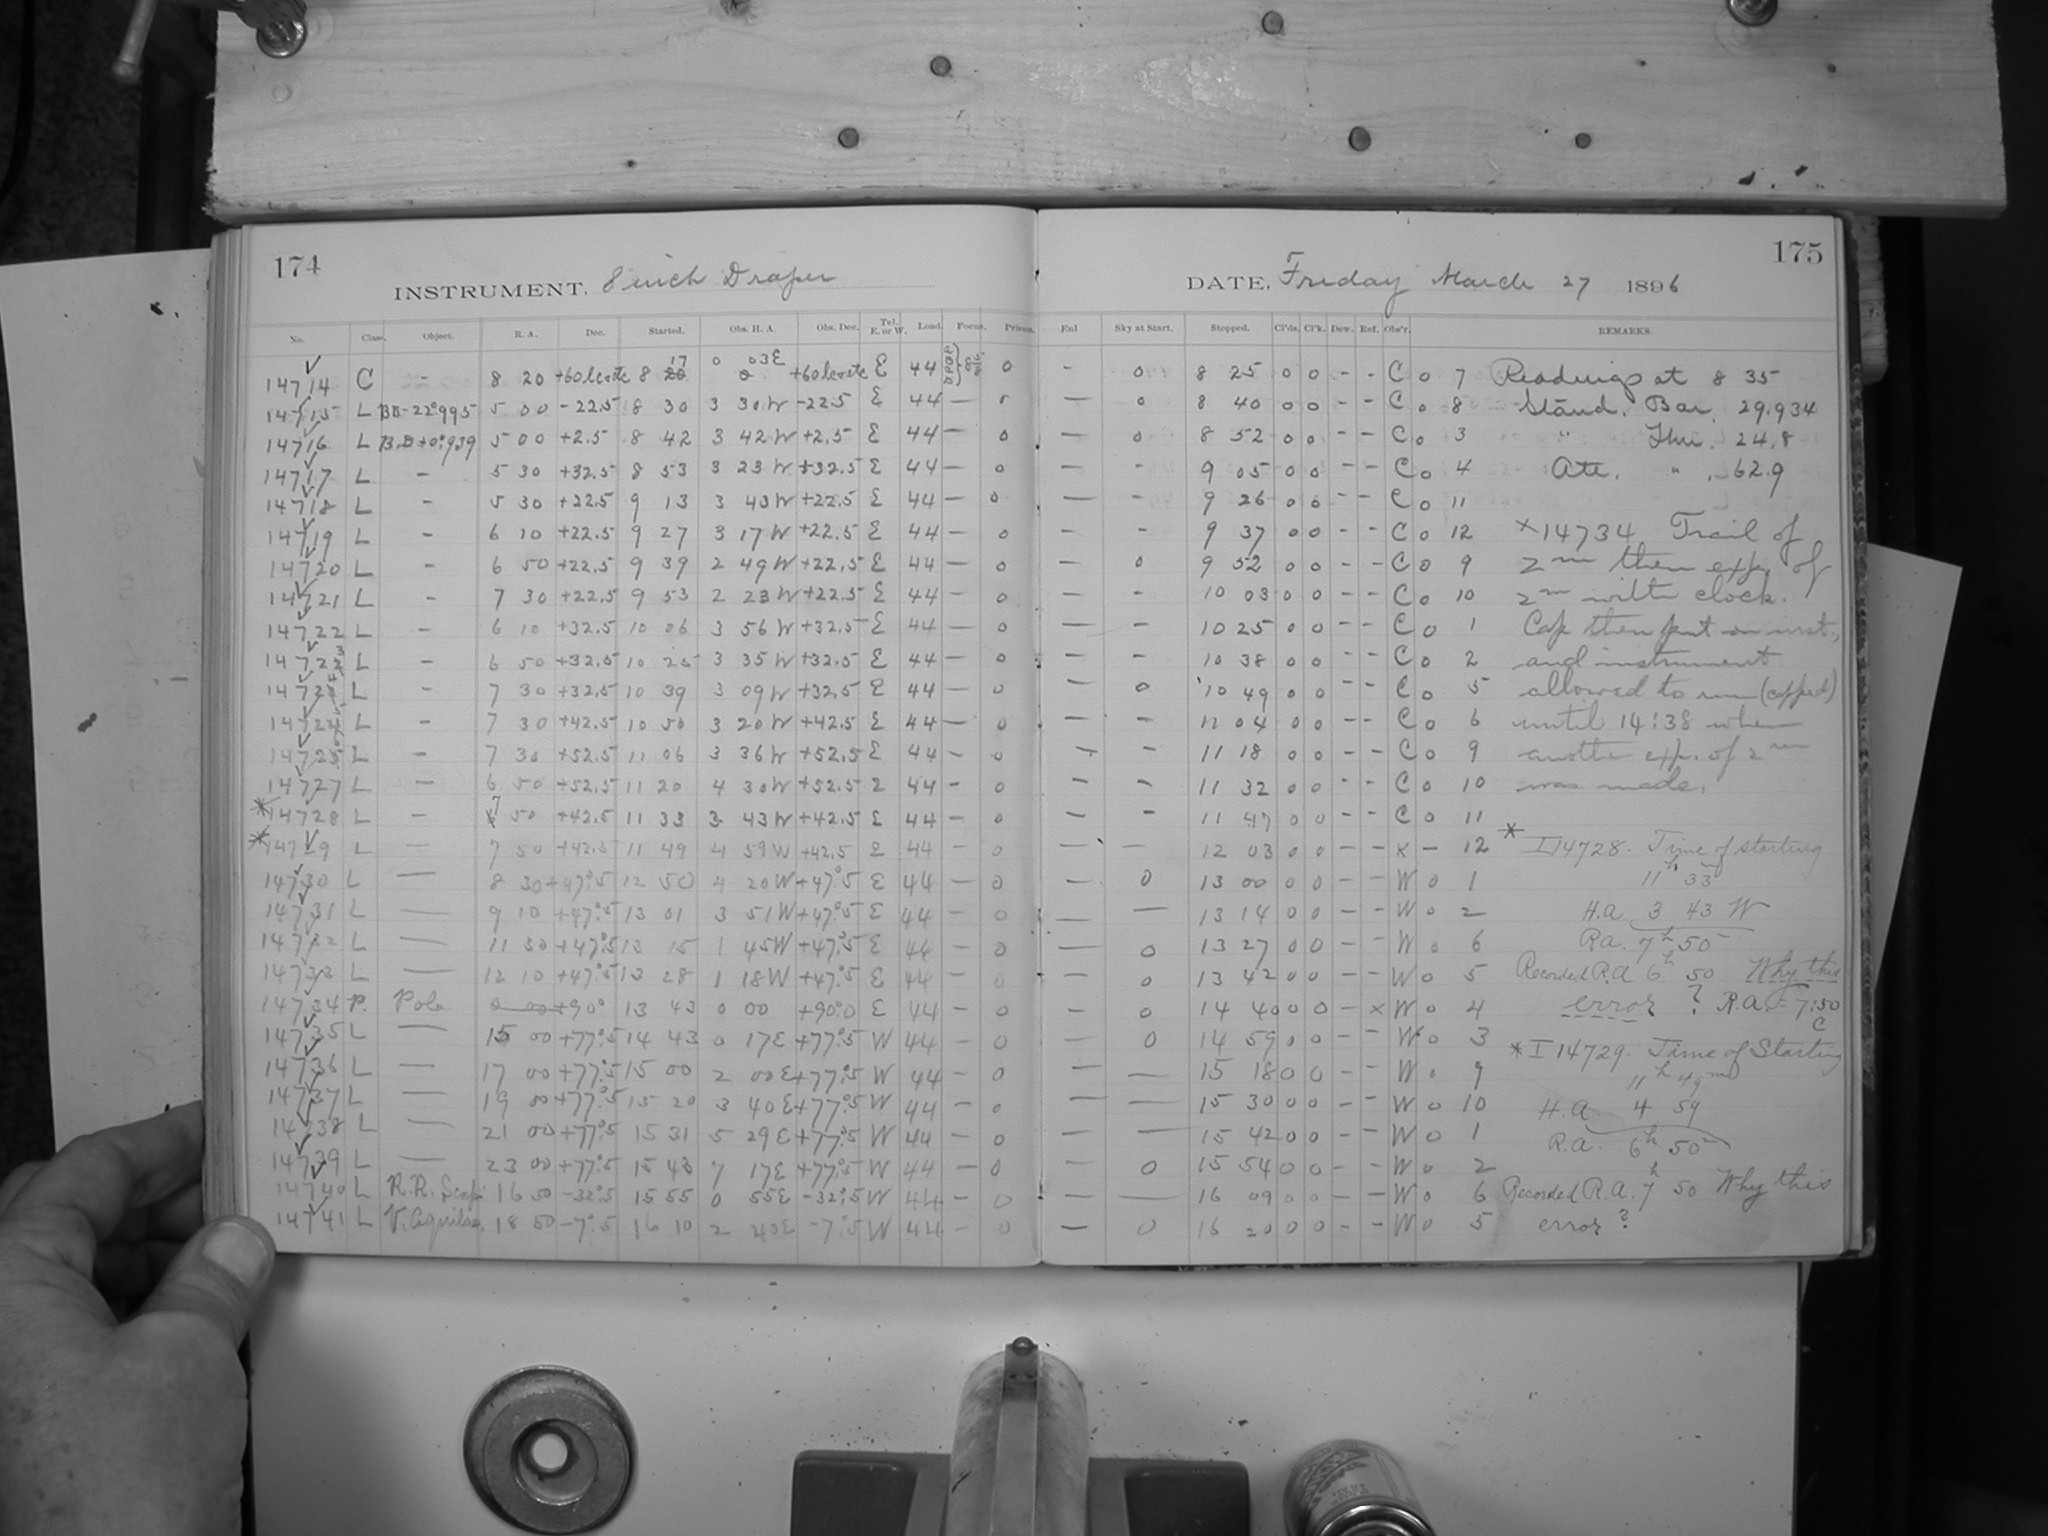 174
INSTRUMENT. 8 inch Draper
No. Class. Object. R. A. Dec. Started. Obs. H. A. Obs. Dec. Tel. E. or W. Load. Focus. Prisms.
14714 C - 8 20 +60 8 17 20 0 03E 0 +60 E 44 0
14715 L 5 00 -22.5 8 30 3 30W -22.5 E 44 — 0
14716 L 5 00 +2.5 8 42 3 42W +2.5 E 44 — 0
14717 L - 5 30 +32.5 8 53 3 23W +32.5 E 44 — 0
14718 L - 5 30 +22.5 9 13 3 43W +22.5 E 44 — 0
14719 L - 6 10 +22.5 9 27 3 17W +22.5 E 44 — 0
14720 L - 6 50 +22.5 9 39 2 49W +22.5 E 44 — 0
14721 L - 7 30 +22.5 9 53 2 23W +22.5 E 44 — 0
14722 L - 6 10 +32.5 10 06 3 56W +32.5 E 44 — 0
14723 L - 6 50 +32.5 10 25 3 35W +32.5 E 44 — 0
14724 L - 7 30 +32.5 10 39 3 09W +32.5 E 44 — 0
14725 L - 7 30 +42.5 10 50 3 20W +42.5 E 44 — 0
14726 L - 7 30 +52.5 11 06 3 36W +52.5 E 44 — 0
14727 L — 6 50 +52.5 11 20 4 30W +52.5 E 44 - 0
*14728 L - 7 50 +42.5 11 33 3 43W +42.5 E 44 — 0
*14729 L — 7 50 +42.5 11 49 4 59W +42.5 E 44 — 0
14730 L — 8 30 +47°.5 12 50 4 20W +47°.5 E 44 — 0
14731 L — 9 10 +47°.5 13 01 3 51W +47°.5 E 44 — 0
14732 L — 11 30 +47°.5 13 15 1 45W +47°.5 E 44 — 0
14733 L — 12 10 +47°.5 13 28 1 18W +47°.5 E 44 — 0
14734 P. Pole 0 00 +90° 13 43 0 00 +90°.0 E 44 — 0
14735 L — 15 00 +77°.5 14 43 0 17E +77°.5 W 44 — 0
14736 L — 17 00 +77°.5 15 00 2 00E +77°.5 W 44 — 0
14737 L — 19 00 +77°.5 15 20 3 40E +77°.5 W 44 — 0
14738 L — 21 00 +77°.5 15 31 5 29E +77°.5 W 44 — 0
14739 L — 23 00 +77°.5 15 43 7 17E +77°.5 W 44 — 0
14740 L R.R. 16 50 -32°.5 15 55 0 55E -32°.5 W 44 — 0
14741 L V. Aquilae. 18 50 -7°.5 16 10 2 40E -7°.5 W 44 — 0
175
DATE, Friday March 27 1896
Enl Sky at Start. Stopped. Cl'ds. Cl'k. Dew. Ref. Obs'r. REMARKS.
- 0 8 25 0 0 - - C 0 7 Readings at 8 35
— 0 8 40 0 0 - - C 0 8 Stand. Bar. 29.934
— 0 8 52 0 0 - - C 0 3 " Thr. 24.8
- - 9 05 0 0 - - C 0 4 Att. " . 62.9
— - 9 26 0 0 - - C 0 11
- - 9 37 0 0 - - C 0 12 ×14734 Trail of
- 0 9 52 0 0 - - C 0 9 2m then exp. of
- - 10 03 0 0 - - C 0 10 2m with clock.
— - 10 25 0 0 - - C 0 1 Cap then put on inst.,
— - 10 38 0 0 - - C 0 2 and instrument
— 0 10 49 0 0 - - C 0 5 allowed to run (capped)
- - 11 04 0 0 - - C 0 6 until 14:38 when
- - 11 18 0 0 - - C 0 9 another exp. of 2m
- - 11 32 0 0 - - C 0 10 was made.
- - 11 47 0 0 - - C 0 11
— — 12 03 0 0 - - K - 12 * I 14728. Time of starting
— 0 13 00 0 0 - - W 0 1 11h 33m
— — 13 14 0 0 - - W 0 2 H.A. 3 43 W
— 0 13 27 0 0 - - W 0 6 R.A. 7h 50
— 0 13 42 0 0 - - W 0 5 Recorded R.A 6h 50 Why this
- 0 14 40 0 0 - × W 0 4 error ? R.A. = 7:50
C
— 0 14 59 0 0 - - W 0 3 * I 14729. Time of Starting
— — 15 18 0 0 - - W 0 9 11h 49m
— — 15 30 0 0 - - W 0 10 H.A 4 59
— — 15 42 0 0 - - W 0 1 R.A. 6h 50
— 0 15 54 0 0 - - W 0 2
— — 16 09 0 0 - - W 0 6 Recorded R.A. 7h 50 Why this
— 0 16 20 0 0 - - W 0 5 error?